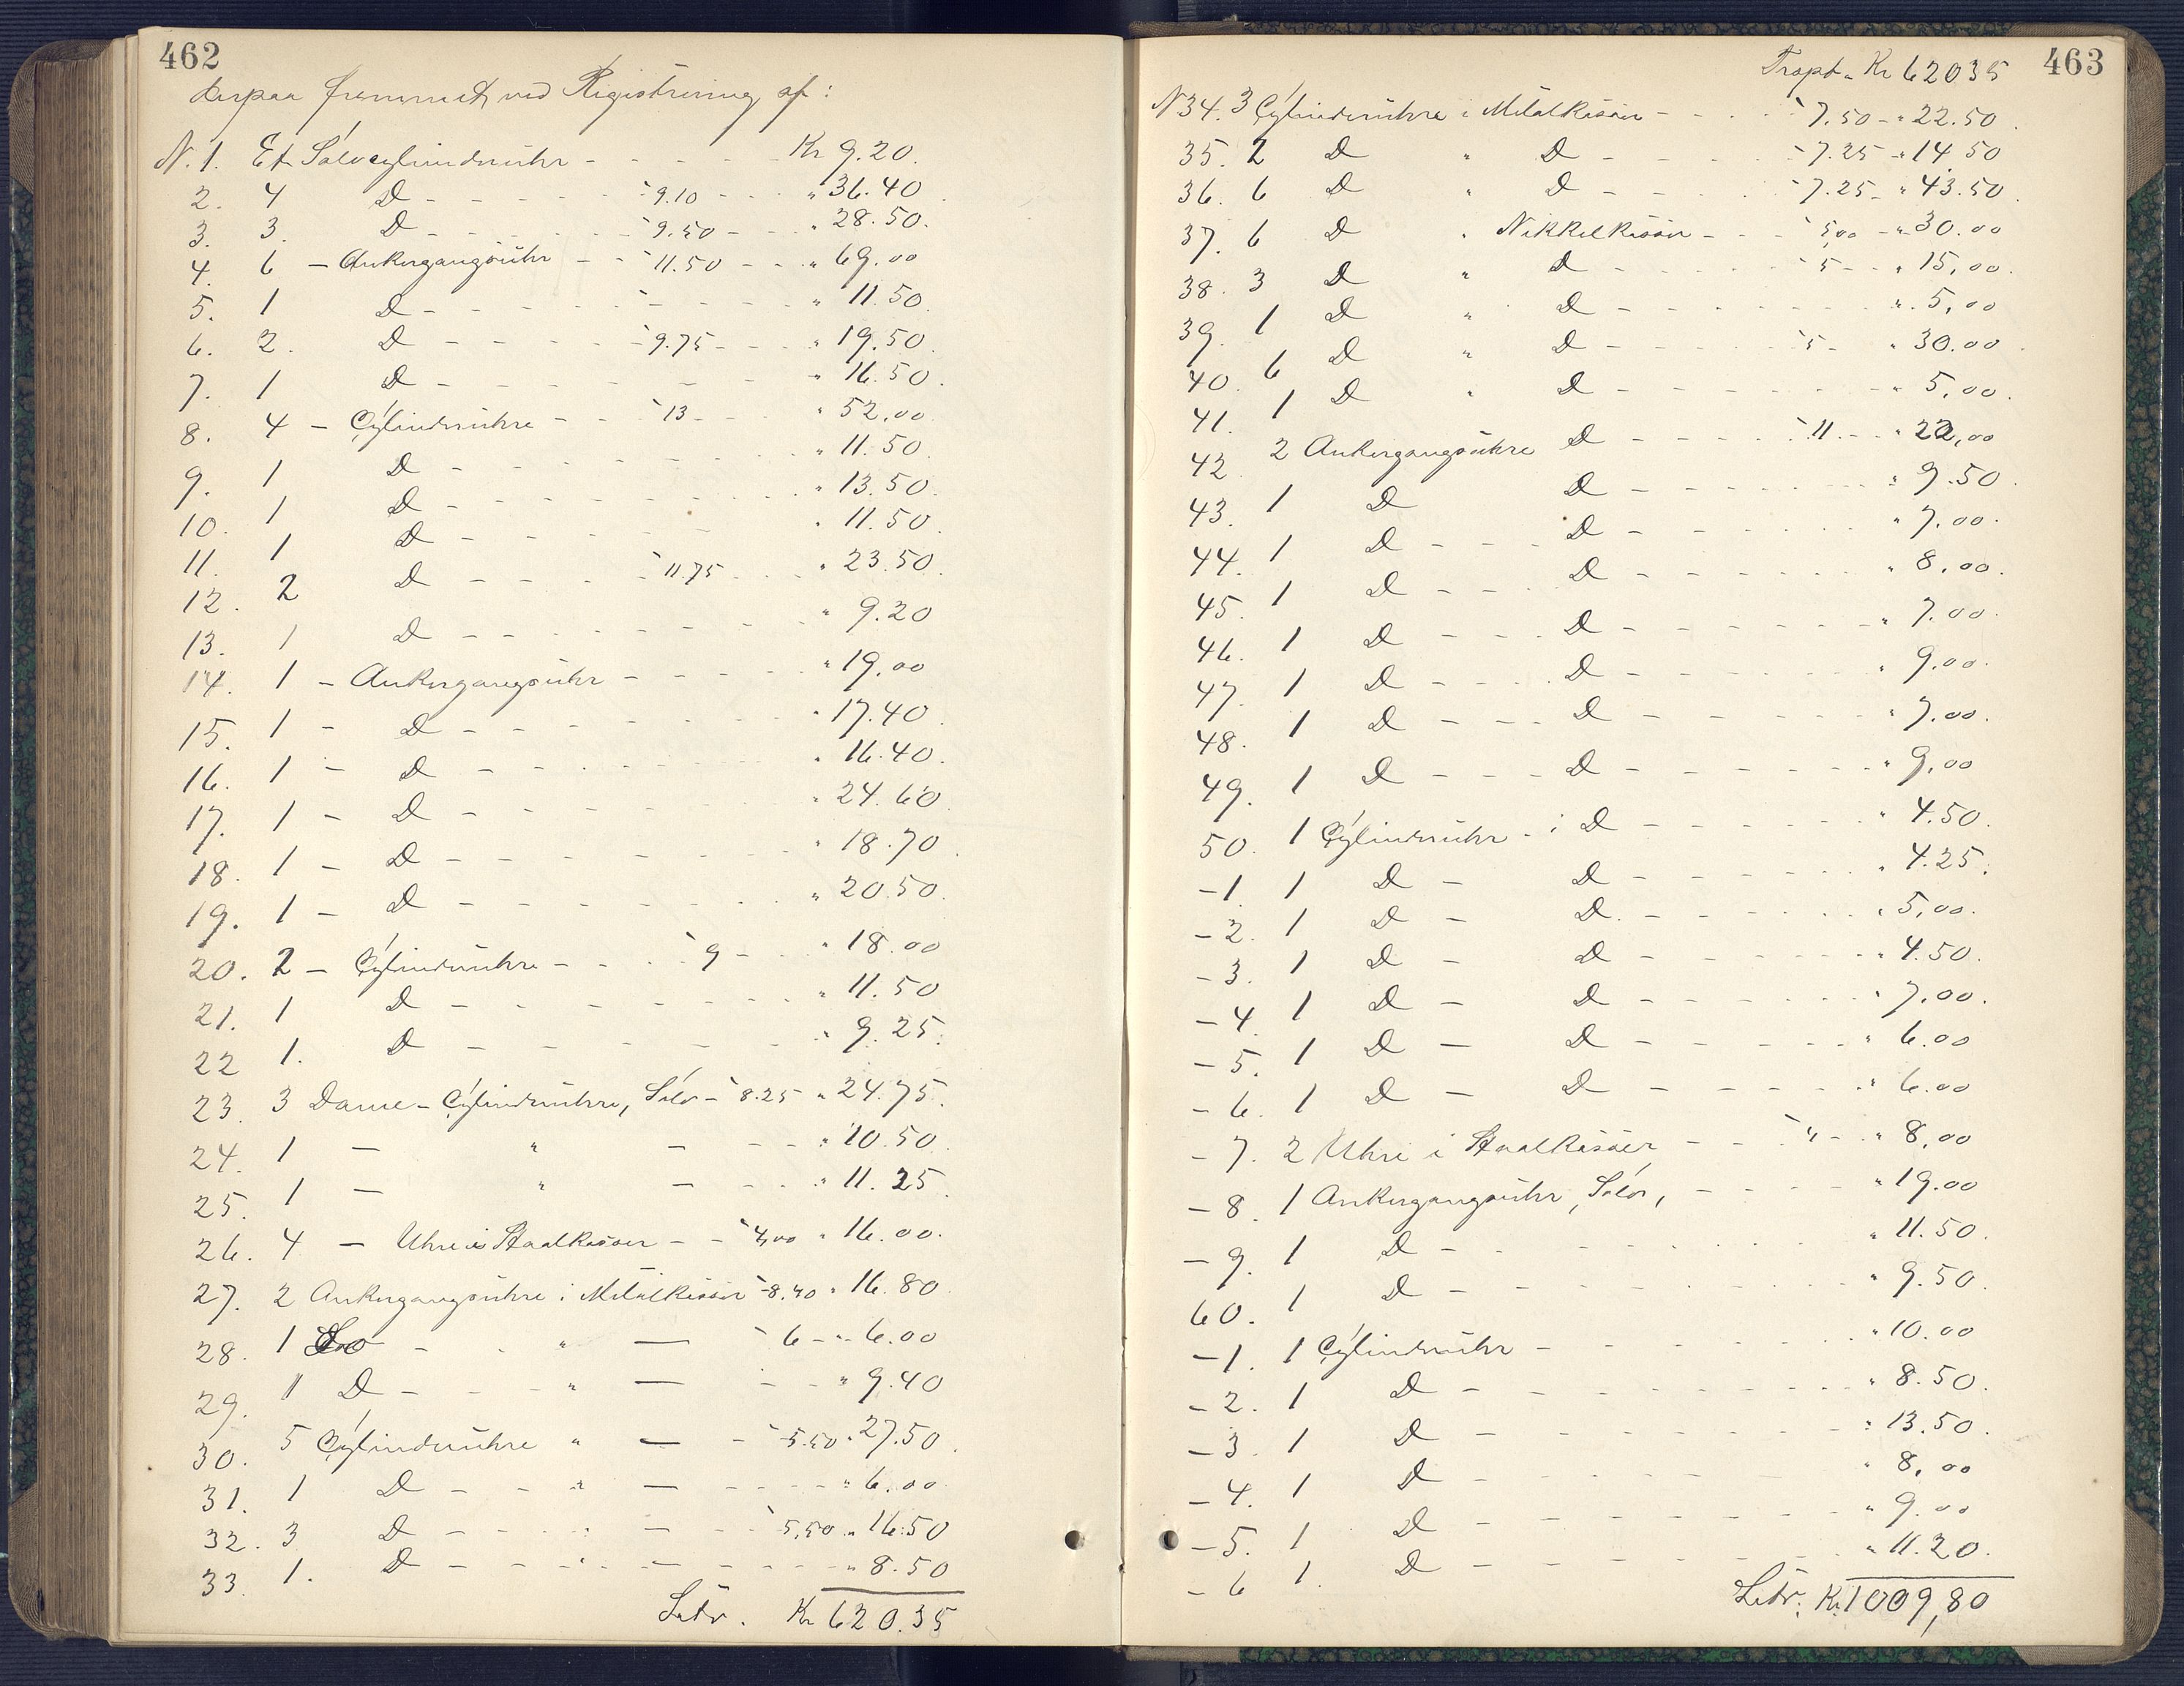 462
derpaa fremmet ved Registrering af:
N. 1. Et Sølvcylinderuhr - - - - - Kr 9.20.
2. 4 D - - - - - 9.10 - - " 36.40
3. 3. D - - - - - 9.50 - - " 28.50.
4. 6 - Ankergangsuhr - - 11.50 - - " 69.00
5. 1 D - - - - - - - - " 11.50
6. 2. D - - - - - 9.75 - - - " 19.50
7. 1 D - - - - - - - " 16.50.
8. 4 - Cylinderuhre - - 13 - - " 52.00
9. 1 D - - - - - - " 11.50.
10. 1 D - - - - - - " 13.50.
11. 1 D - - - - - - " 11.50
12. 2 D - - - - 11.75 - - " 23.50.
13. 1 D - - - - - - - " 9.20
14. 1 - Ankergangsuhr - - - - - " 19.00
15. 1 - D - - - - - - " 17.40
16. 1 - D - - - - - - " 16.40.
17. 1 - D - - - - - " 24.60
18. 1 - D - - - - - - - " 18.70
19. 1 - D - - - - - - - " 20.50
20. 2 - Cylinderuhre - - - 9 - - " 18.00
21. 1 D - - - - - - - " 11.50
22 1. D - - - - - - " 9.25.
23. 3 Dame-Cylinderuhre, Sølv - 8.25 " 24.75.
24. 1 - " - - - - " 10.50
25. 1 - " - - - - " 11.25
26. 4 - Uhre i Staalkasser - - 4,00 " 16.00.
27. 2 Ankergangsuhre i Metalkasser - 8.40 " 16.80
28. 1 Do - - " - 6 - " 6.00
29. 1 D - - - " - - - " 9.40
30. 5 Cylinderuhre " - - 5.50 " 27.50
31. 1 D - - - " - - - - - " 6.00
32. 3 D - - - - - - 5,50 " 16.50
33. 1. D - - - - - - - - - " 8.50
Latr. Kr 620.35
463
Trspt. Kr 62035
N 34. 3 Cylinderuhre i Metalkasser - - - 7.50 - " 22.50
35. 2 D " D - - - - 7.25 - " 14.50
36. 6 D " D - - - - 7.25 - " 43.50
37. 6 D " Nikkelkasser - - - 5,00 - " 30.00
38. 3 D " D - - - - - 5 - - " 15,00.
39. 1 D " D - - - - - - - " 5,00
40. 6 D " D - - - - - 5 - " 30.00
41. 1 D " D - - - - - - - " 5,00.
42. 2 Ankergangsuhre D - - - - 11. - - " 22,00
43. 1 D D - - - - - - " 9.50
44. 1 D - - - D - - - - - - " 7.00.
45. 1 D - - - D - - - - - - " 8.00.
46. 1 D - - - D - - - - - - " 7.00
47. 1 D - - - D - - - - - - " 9.00.
48. 1 D - - - D - - - - - - " 7.00.
49. 1 D - - - D - - - - - - " 9,00
50. 1 Cylinderuhr - i D - - - - - - " 4.50.
-1. 1 D - D - - - - - - " 4.25.
-2. 1 D - D. - - - - - - " 5,00.
-3. 1 D - D - - - - - - " 4.50.
-4. 1 D - D - - - - - - " 7,00.
-5. 1 D - D - - - - - - " 6.00
-6. 1 D - D - - - - - - " 6.00
-7. 2 Uhre i Staalkasser - - 4 - - " 8,00
-8. 1 Ankergangsuhr, Sølv, - - - - " 19.00
-9. 1 D - - - - - - - " 11.50.
60. 1 D - - - - - - - " 9.50
-1. 1 Cylinderuhr - - - - - - " 10.00
-2. 1 D - - - - - - - - " 8.50.
-3. 1 D - - - - - - - - " 13.50.
-4. 1 D - - - - - - " 8,00
-5. 1 D - - - - - - - " 9.00
-6 1. D - - - - - - - " 11.20.
Latr. Kr. 1009,80